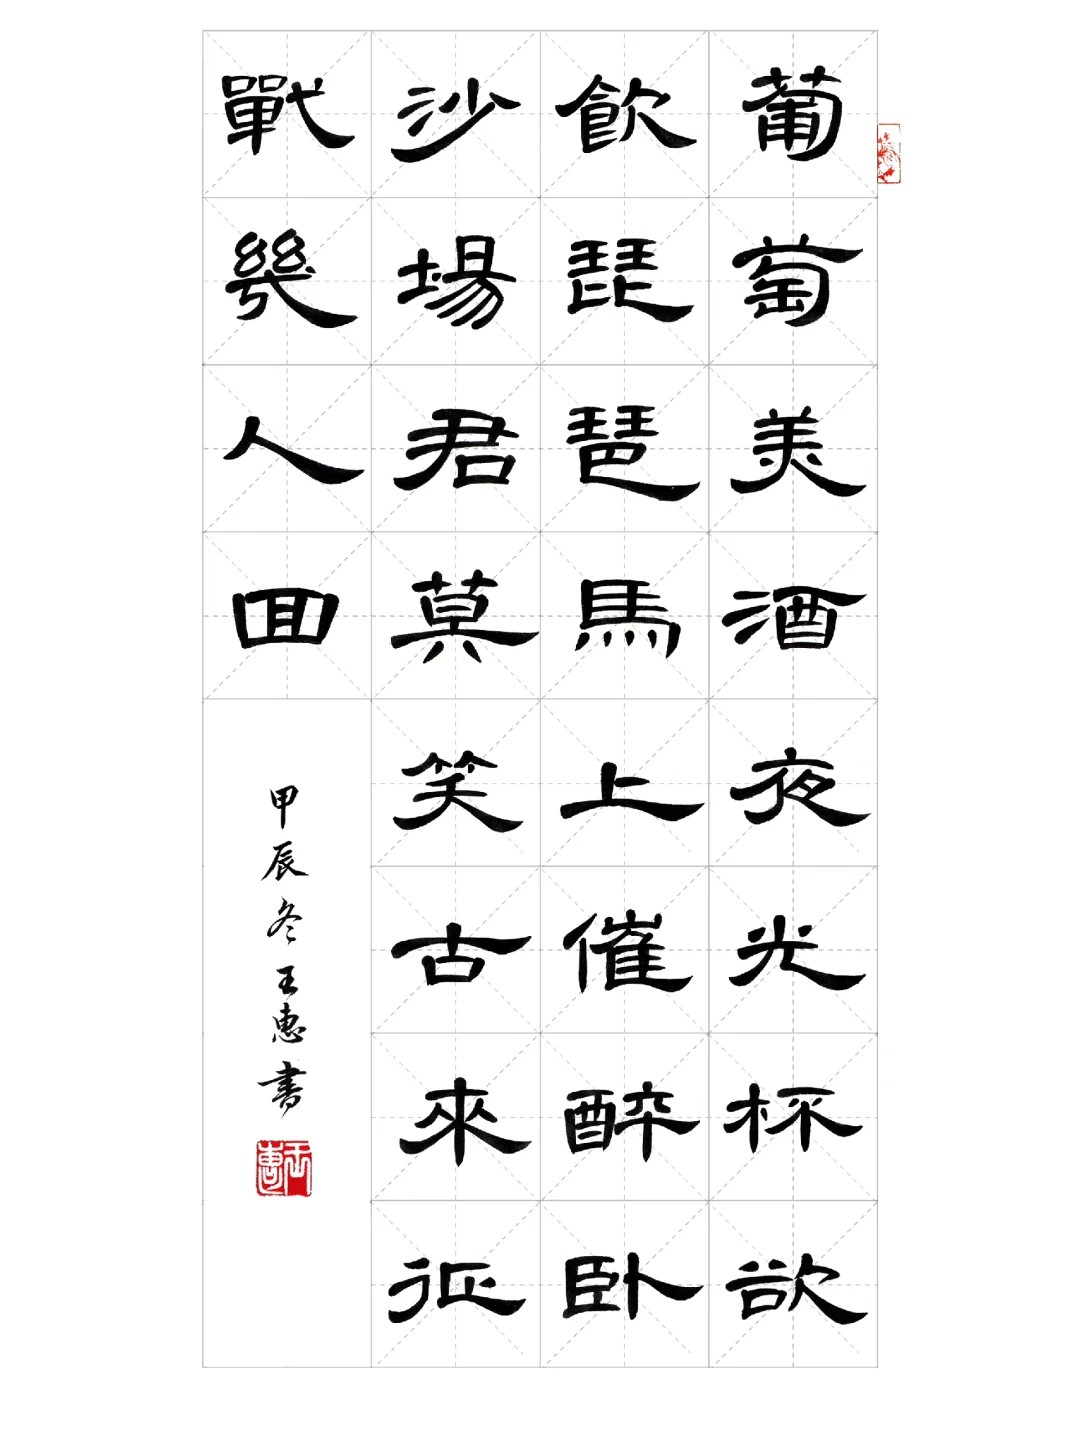 葡萄美酒夜光杯欲
飲琵琶馬上催醉卧
沙場君莫笑古來征
戰幾人回
甲辰冬王惠書
王惠